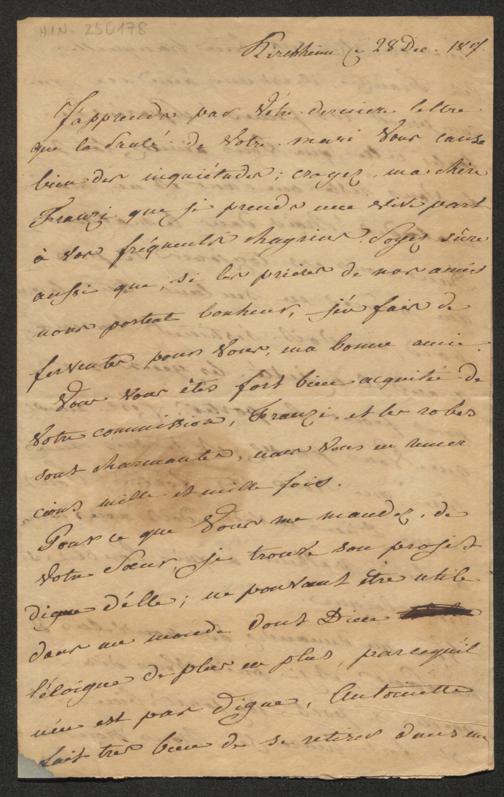 HIN-250178
Kirchheim ce 28 Dec. 18
J'apprends par Vôtre derniere lettre
que la Santé de Votre mari Vous cause
bien des inquiétudes; croyez, ma chère
Franzi que je prends une vive part
à vos fréquents chagrins. Soyez sûre
aussi que, si les prieres de nos amies
nous portent bonheur, j'en fais de
ferventes pour Vous, ma bonne amie.
Vous Vous êtes fort bien acquitée de
Vôtre commission, Franzi, et les robes
sont charmantes, nous Vous en remer
cions mille et mille fois.
Pour ce que Vous me mandez, de
Vôtre Sœur, je trouve son projet
digne d'elle; ne pouvant être utile
dans un monde dont Dieu
l'éloigne de plus en plus, parcequ'il
n'en est pas digne, Antoinette
fait très bien de se retirer dans un